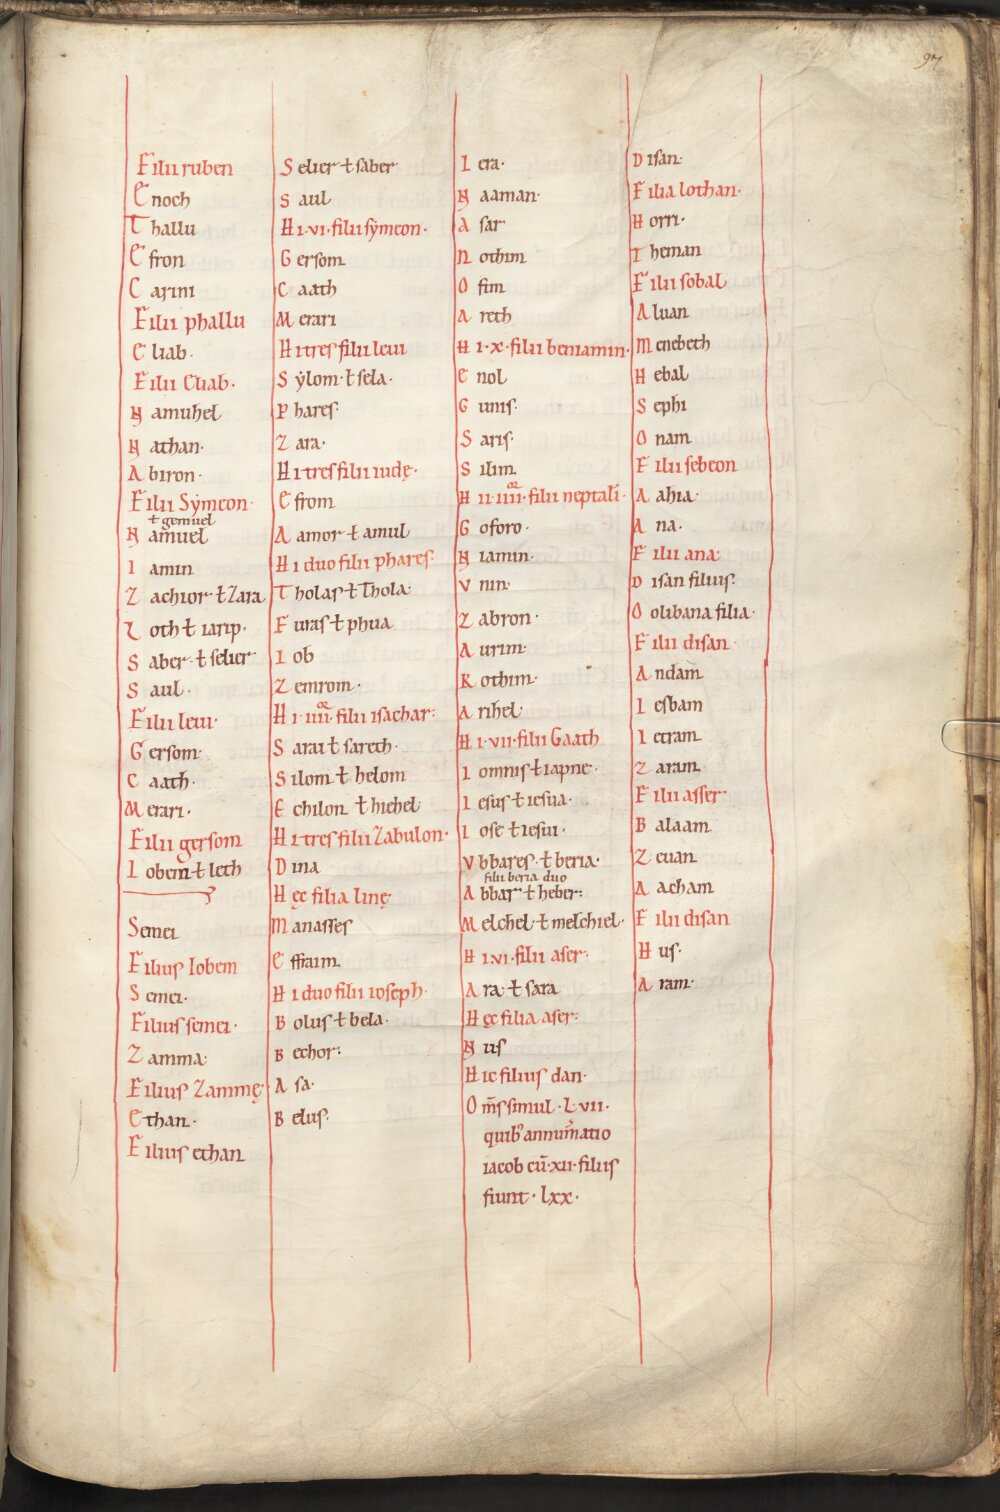 97
Filii ruben
Enoch
Thallu
Efron
Carmi
Filii phallu
Eliab·
Filii Eliab·
Namuhel
Nathan·
Abiron·
Filii Sẏmeon·
ɫ gemuel
Namuel
Iamin
Zachior ɫ Zara
Zoth ɫ iarip·
Saber· ɫ selier
Saul·
Filii leui·
Gersom·
Caath·
Merari·
Filii gersom
Lobem ɫ leth
Semei
Filius lobem
Semei·
Filius semei·
Zamma·
Filius Zammę·
Ethan·
Filius ethan
Selier ɫ saber
Saul
Hi·vi·filii sẏmeon·
Gersom
Caath
Merari
Hi tres filii leui
Sẏlom· ɫ sela·
Phares·
Zara·
Hi tres filii iudę·
Efrom
Aamor ɫ amul
Hi duo filii phares·
Tholas ɫ Thola·
Furas ɫ phua
Iob
Zemrom·
Hi·iiii·filii isachar:
Sarai ɫ sareth·
Silom ɫ helom
Echilon ɫ hiehel
Hi tres filii Zabulon·
Dina
Hęc filia linę
Manasses
Effraim
Hi duo filii ioseph·
Bolus ɫ bela·
Bechor:
Asa·
Belus·
Iera·
Naaman·
Asar
Nothim
Ofim
Areth
Hi·x·filii beniamin·
Enol
Gunis·
Saris·
Silim
Hii·iiii·filii neptali·
Goforo·
Niamin·
Vnin·
Zabron·
Aurim·
Kothim·
Arihel
Hi·vii·filii Gaath
Iomnis ɫ iapne·
Iesus ɫ iesua·
Iose ɫ iesui·
Vbbares· ɫ beria·
filii beria duo
Abbar ɫ heber:
Melchel ɫ melchiel·
Hi·vi·filii aser:
Ara ɫ sara
Hęc filia aser:
Nus
Hic filius dan·
Om̄s simul·Lvii·
quib; annum̄atio
iacob cū·xii·filiis
fiunt·lxx·
Disan·
Filia lothan·
Horri·
Theman
Filii sobal
Aluan
Menebeth
Hebal
Sephi
Onam
Filii sebeon
Aahia·
Ana·
Filii ana·
Disan filius·
Oolibana filia·
Filii disan
Andam
Iesbam
Ietram
Zaram
Filii asser
Balaam
Zeuan
Aacham
Filii disan
Hus·
Aram·